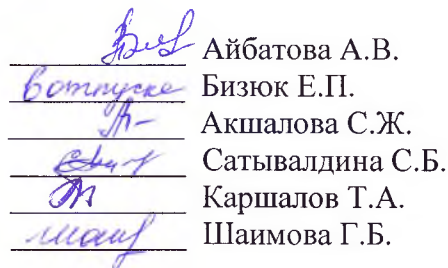 Айбатова А.В.
в отпуске Бизюк Е.П.
Акшалова С.Ж.
Сатывалдина С.Б.
Каршалов Т.А.
Шаимова Г.Б.